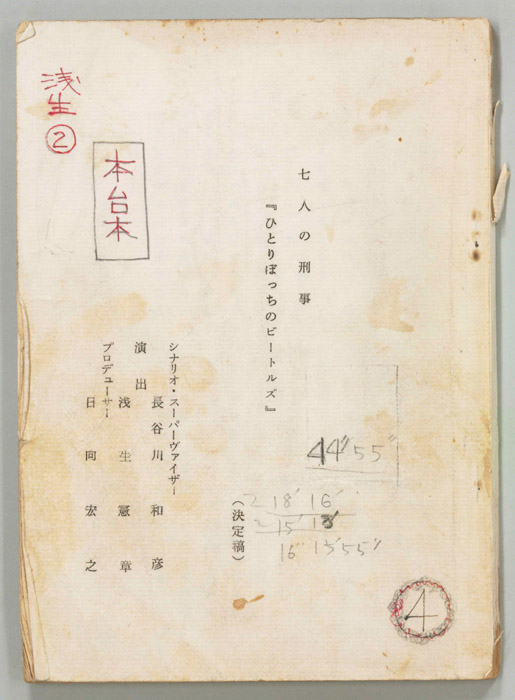 七人の刑事
『ひとりぼっちのビートルズ』
（決定稿）
シナリオ・スーパーヴァイザー
長谷川和彦
演出
浅生憲章
プロデューサー
日向宏之
浅生
②
本台本
44"55"
2 18' 16'
16" 15'55"
4